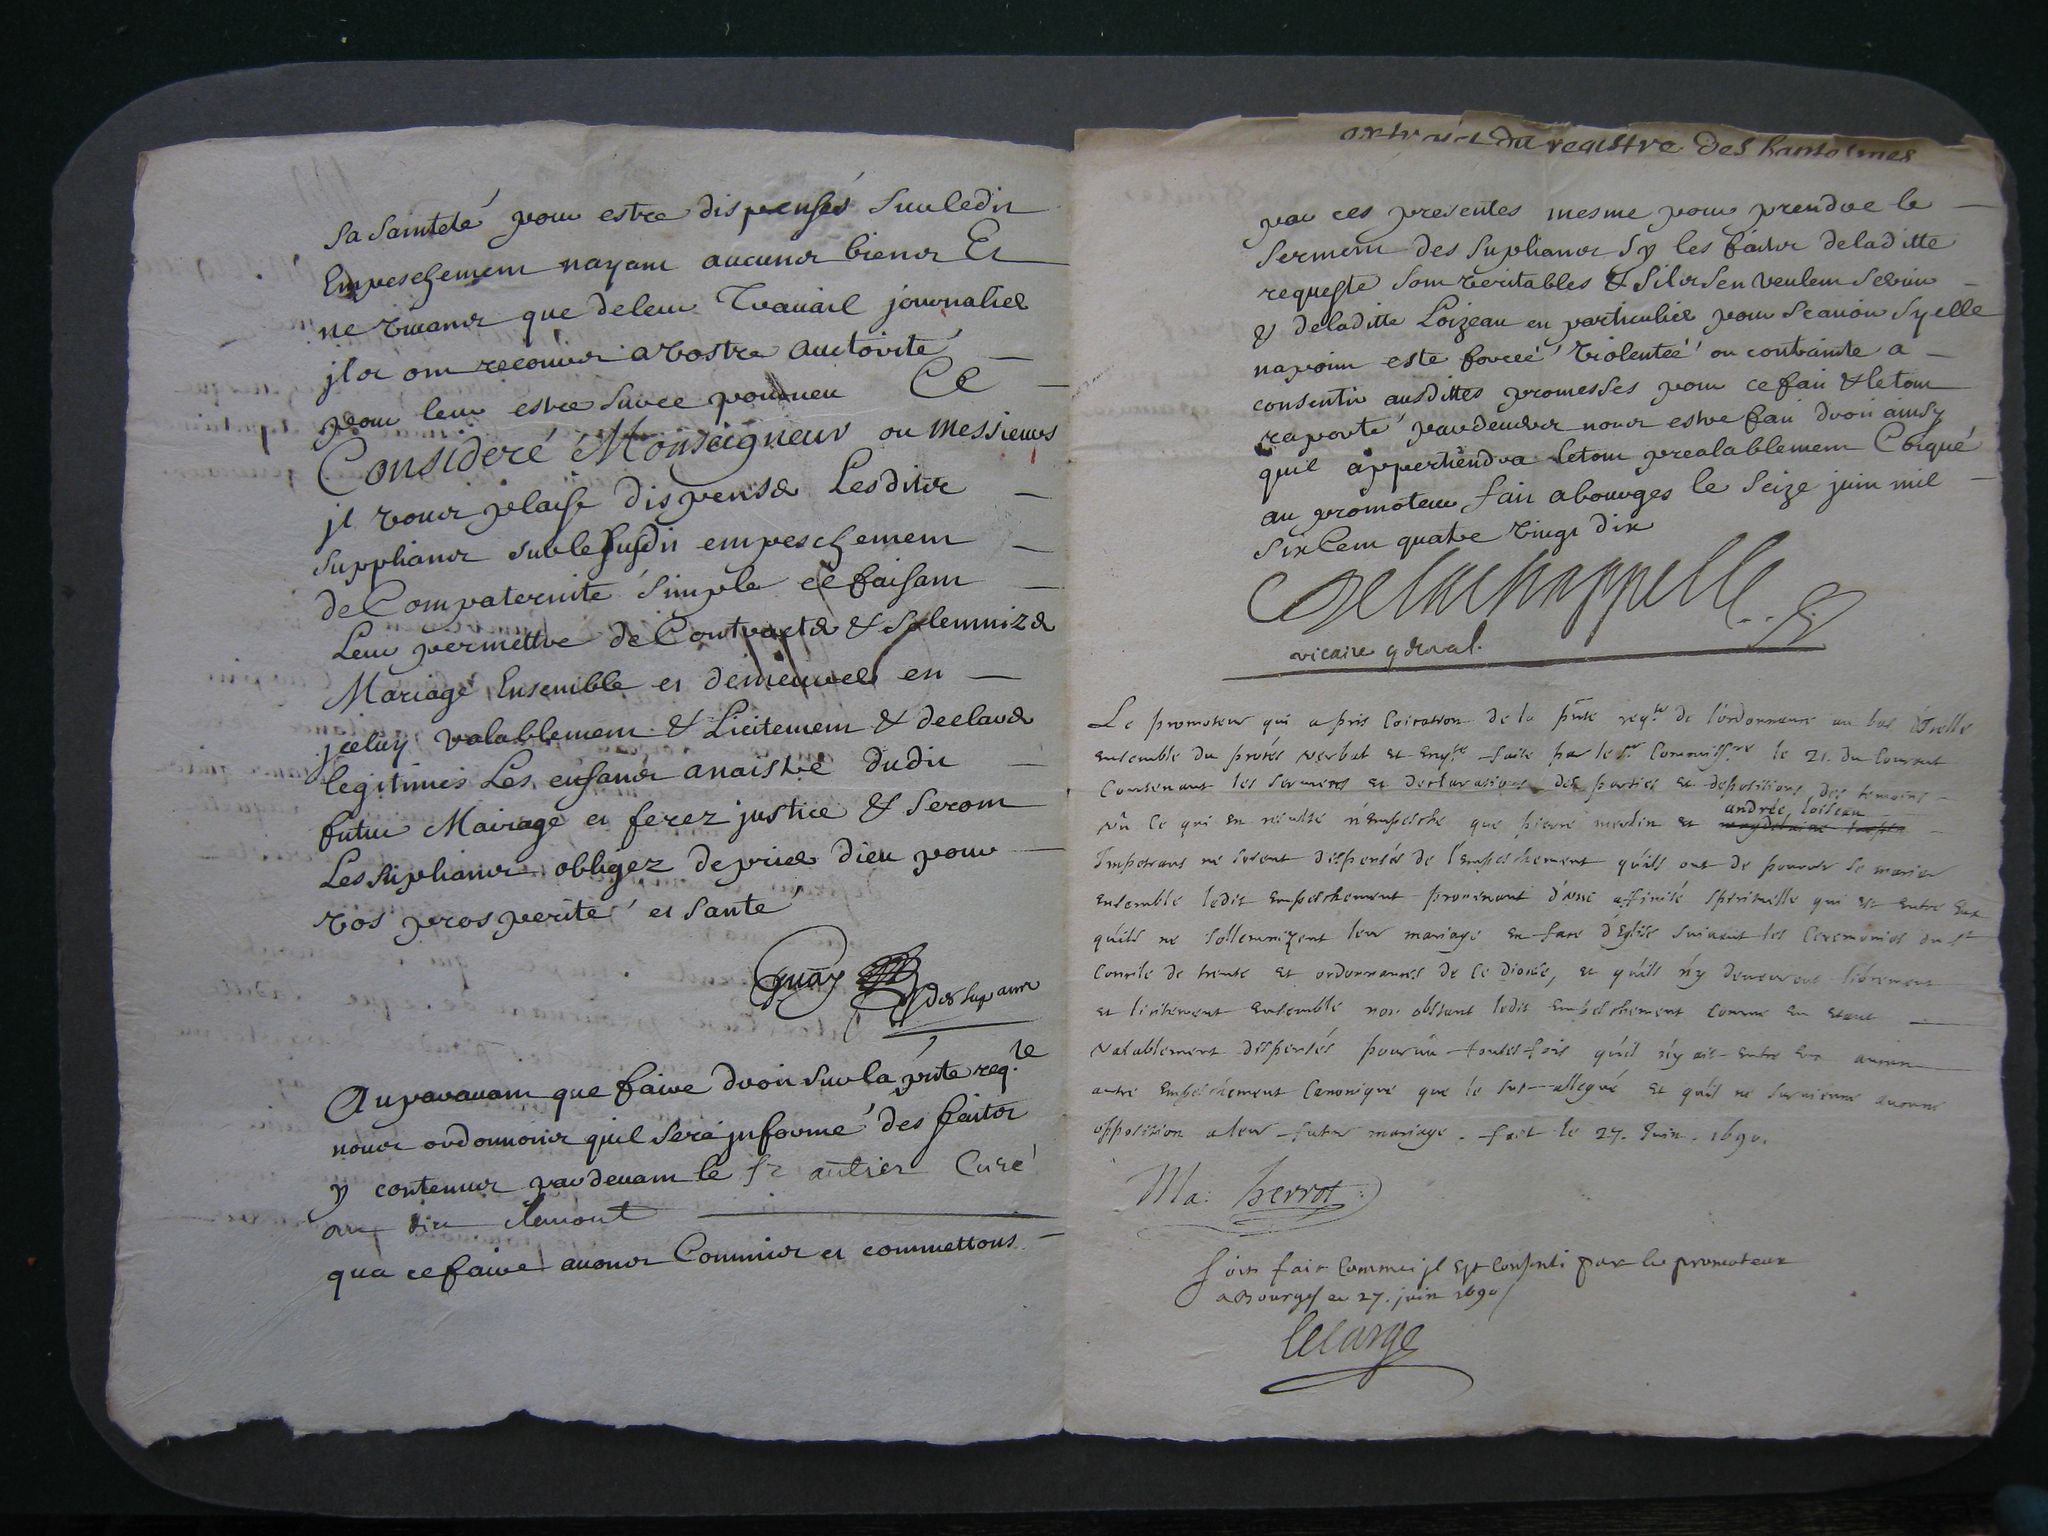 Sa Sainteté pour estre dispensés sur ledit
Empeschement nayant aucuns biens Et
ne vivans que de leur Travail journalier
jls ont recours a vostre auctorité
pour leur estre surce pourveu Ce
Consideré Monseigneur ou messieurs
jl vous plaise dispenser Lesdits
supplians sur le susdit empeschement
de Compaternité simple ce faisant
Leur permettre de Contracter & solemnizer
Mariage Ensemble et demeurer en
jceluy valablement & Licitement & declarer
legitimes Les enfans a naistre dudit
futur Mariage et ferez justice & seront
Les supliants obligez de prier dieu pour
vos prosperité et santé
Guay
des sup
Auparavant que faire droit sur la pnte reqte
nous ordonnons quil sera jnformé des faits
y contenus pardevant le sr autier Curé
du dit Clemont
qua ce faire avons Commis et commettons
extraict du registre des
par ces presentes mesme pour prendre le
serment des suplians sy les faits de laditte
requeste sont veritables & silz sen veulent servir
& de laditte Loizeau en particulier pour scavoir sy elle
na point esté forcée violentée ou contrainte a
consentir ausdittes promesses pour ce fait & le tout
raporté pardevers nous estre fait droit ainsy
quil appertiendra le tout prealablement Coiqué
au promoteur fait a bourges le seize juin mil
six Cent quatre vingt dix
Delachappelle
vicaire gnral.
Le promoteur qui a pris Coication de la pnte reqte de l'ordonnance au bas d'Icelle
ensemble du procés verbal et Enqte faite par le sr Commissre le 21. du Courant
Contenant les serments et declarations des parties et depositions des temoins
andrée loiseau
Vû Ce qui en resulte n'Empesche que pierre merlin et
Impetrans ne soient dispensés de l'empeschement qu'ils ont de pouvoir se marier
ensemble ledit empeschement provenant d'une affinité spirituelle qui est entre Eux
qu'ils ne sollemnizent leur mariage en face d'Eglise suivant les Ceremonies du st
Concile de trente et ordonnances de Ce diocése, et qu'ils n'y demeurent librement
et licitement ensemble non obstant ledit empeschement Comme en etant
valablement dispensés pourvu toutes fois qu'il n'y ait entre Eux aucun
autre empeschement Canonique que le sus-allegué et qu'il ne survienne aucune
opposition a leur futur mariage. fait le 27. Juin. 1690.
Ma: herrot
soit fait Comme jl est Consenti par le promoteur
a Bourges ce 27. juin 1690
lelarge